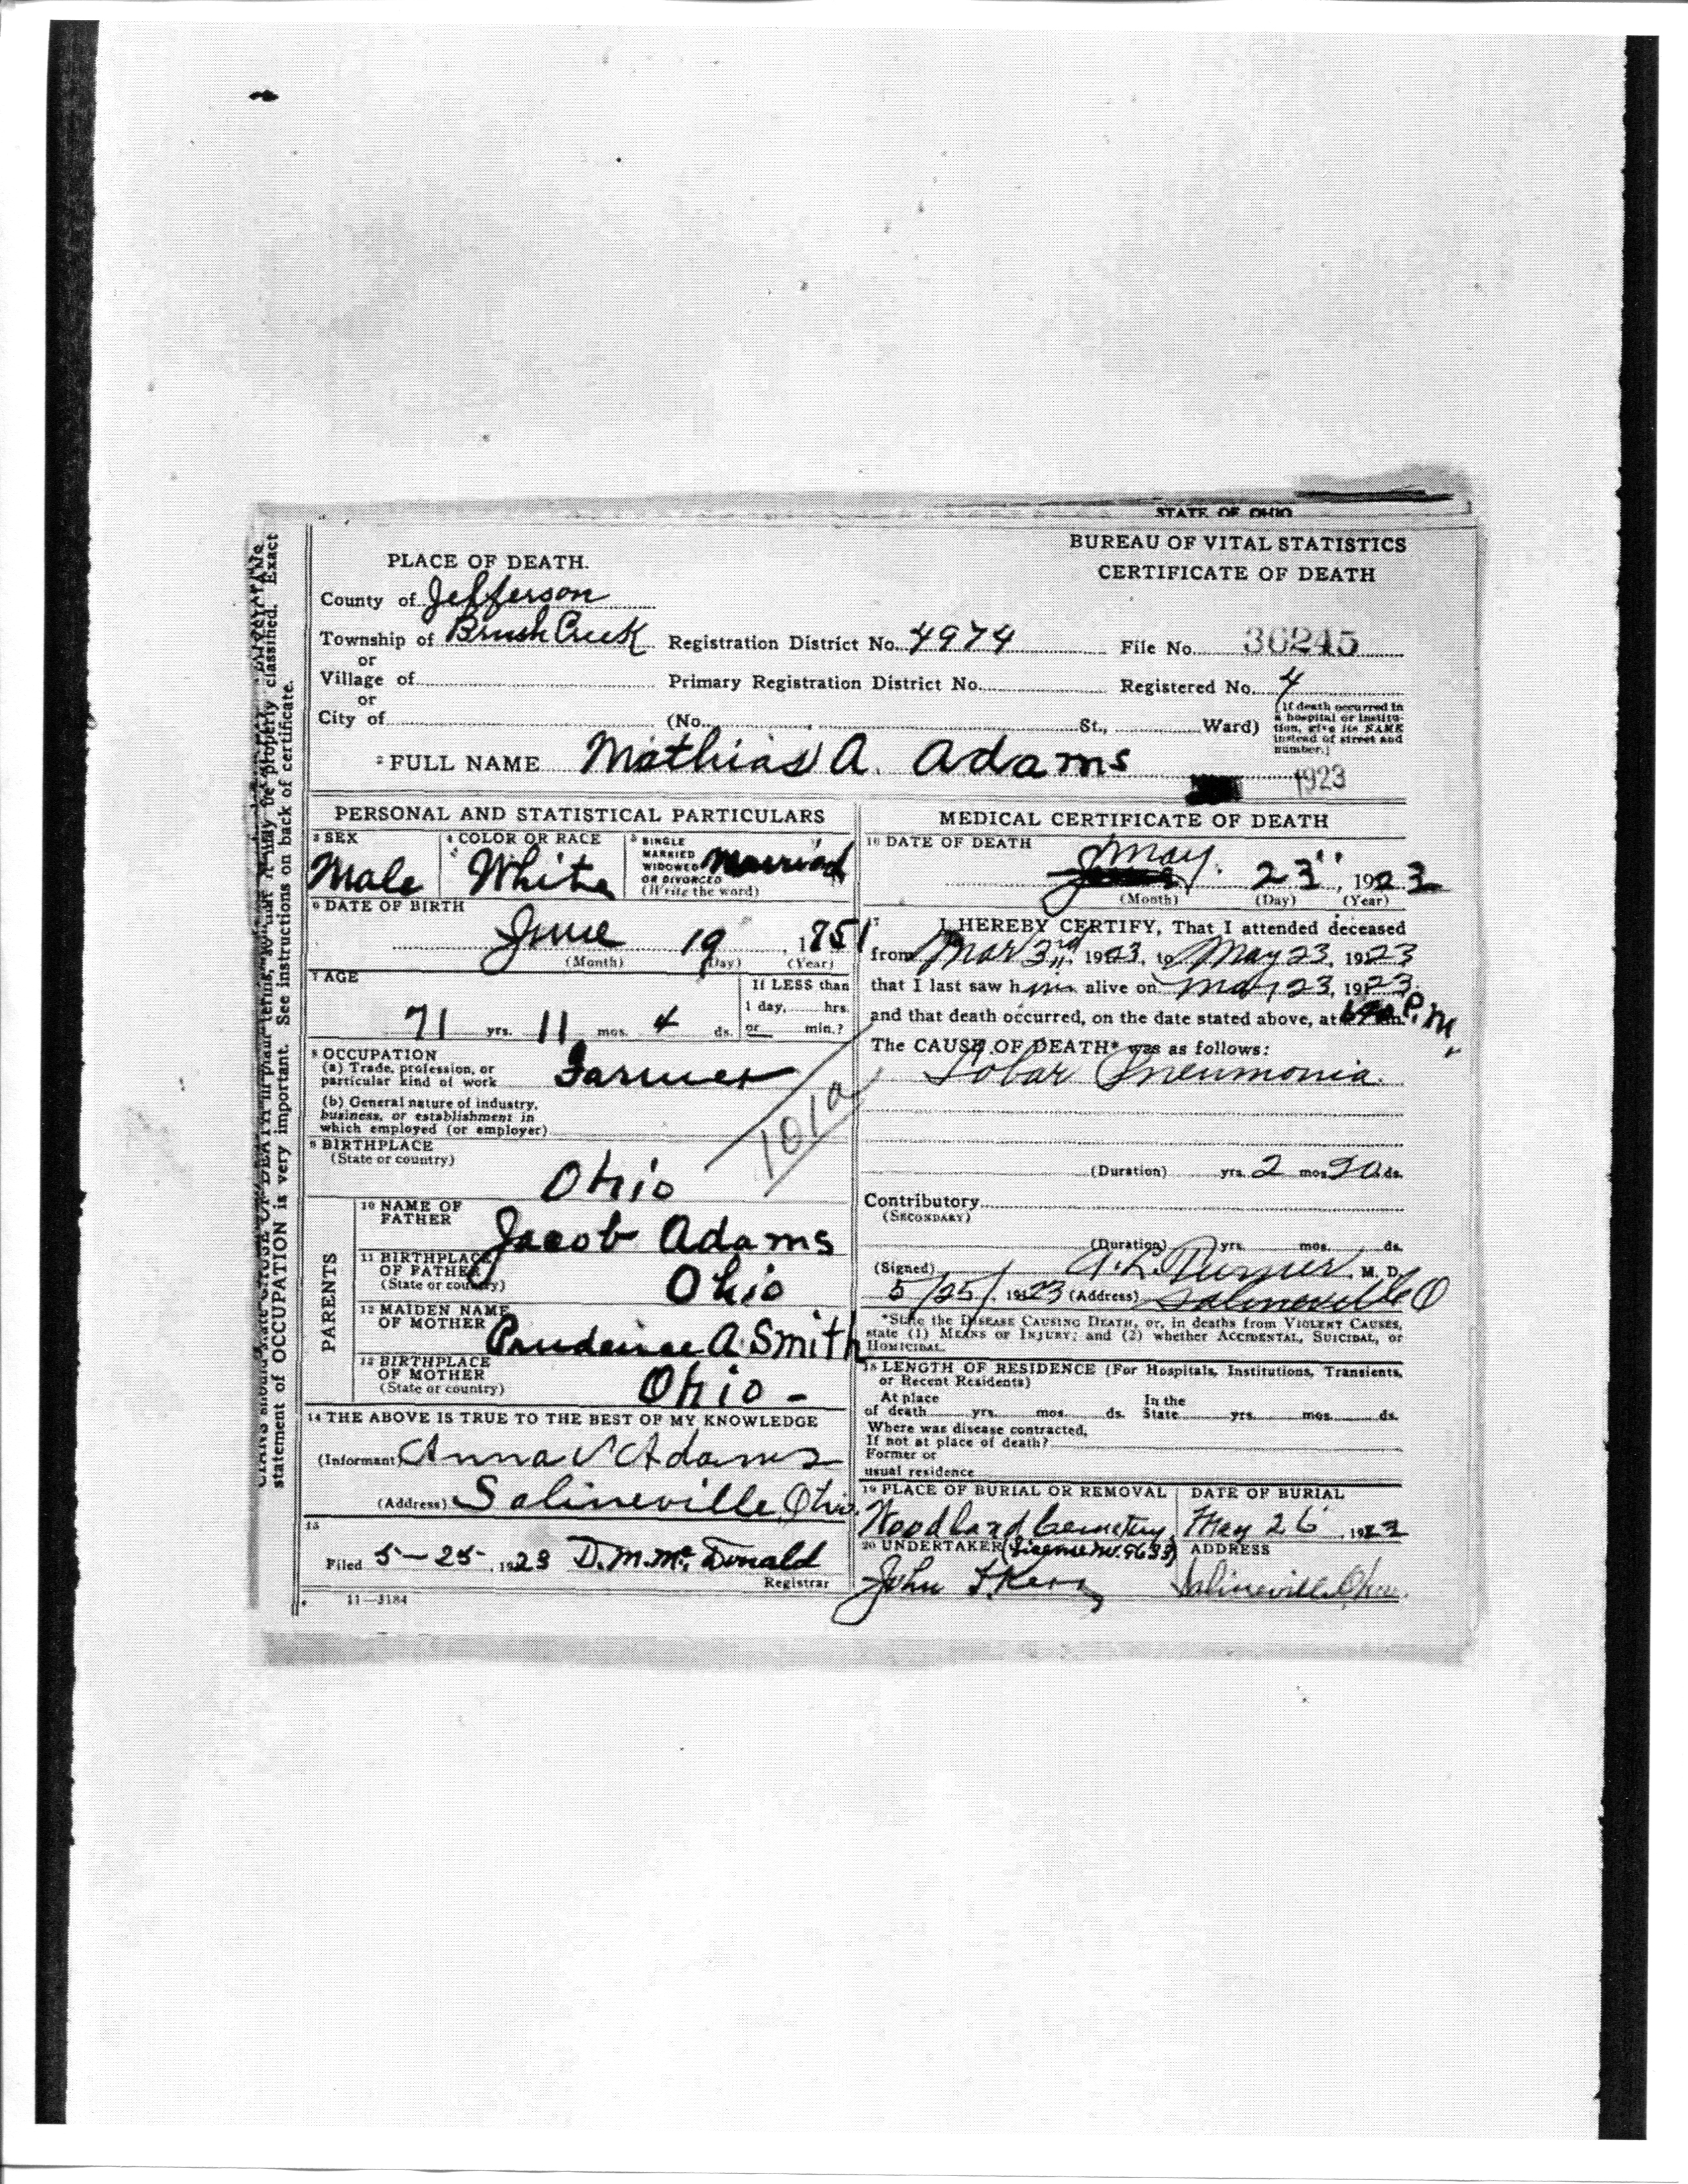 STATE OF OHIO
BUREAU OF VITAL STATISTICS
CERTIFICATE OF DEATH
PLACE OF DEATH.
County of Jefferson
Township of Brush Creek Registration District No. 4974 File No. 36245
or
Village of Primary Registration District No. Registered No. 4
or
City of (No. St., Ward) (If death occurred in a hospital or institution, give its NAME instead of street and number.)
2 FULL NAME Mathias A. Adams
1923
PERSONAL AND STATISTICAL PARTICULARS
3 SEX Male
4 COLOR OR RACE White
5 SINGLE MARRIED WIDOWED OR DIVORCED (Write the word) Married
6 DATE OF BIRTH
June 19, 1851
(Month) (Day) (Year)
7 AGE
71 yrs. 11 mos. 4 ds.
If LESS than
1 day, hrs.
or min.?
8 OCCUPATION
(a) Trade, profession, or
particular kind of work Farmer
(b) General nature of industry,
business, or establishment in
which employed (or employer)
101a
9 BIRTHPLACE
(State or country) Ohio
PARENTS
10 NAME OF
FATHER Jacob Adams
11 BIRTHPLACE
OF FATHER
(State or country) Ohio
12 MAIDEN NAME
OF MOTHER Prudence A. Smith
13 BIRTHPLACE
OF MOTHER
(State or country) Ohio -
14 THE ABOVE IS TRUE TO THE BEST OF MY KNOWLEDGE
(Informant) Anna V Adams
(Address) Salineville, Ohio.
15
Filed 5-25-, 1923 D.M. McDonald
Registrar
11-3184
MEDICAL CERTIFICATE OF DEATH
16 DATE OF DEATH
May 23", 1923
(Month) (Day) (Year)
17 I HEREBY CERTIFY, That I attended deceased
from Mar 3rd, 1923, to May 23, 1923
that I last saw him alive on May 23, 1923.
and that death occurred, on the date stated above, at P.M.
The CAUSE OF DEATH* was as follows:
Lobar Pneumonia.
(Duration) yrs. 2 mos. 20 ds.
Contributory
(SECONDARY)
(Duration) yrs. mos. ds.
(Signed) Turner M. D.
5/25/, 1923 (Address) Salineville O
*State the DISEASE CAUSING DEATH, or, in deaths from VIOLENT CAUSES,
state (1) MEANS OF INJURY; and (2) whether ACCIDENTAL, SUICIDAL, or
HOMICIDAL.
18 LENGTH OF RESIDENCE (For Hospitals, Institutions, Transients,
or Recent Residents)
At place In the
of death yrs. mos. ds. State yrs. mos. ds.
Where was disease contracted,
If not at place of death?
Former or
usual residence
19 PLACE OF BURIAL OR REMOVAL DATE OF BURIAL
Woodland Cemetery, May 26, 1923
20 UNDERTAKER (License no. 963) ADDRESS
John Kerr Salineville, Ohio.
classified. Exact
statement of OCCUPATION is very important. See instructions on back of certificate.